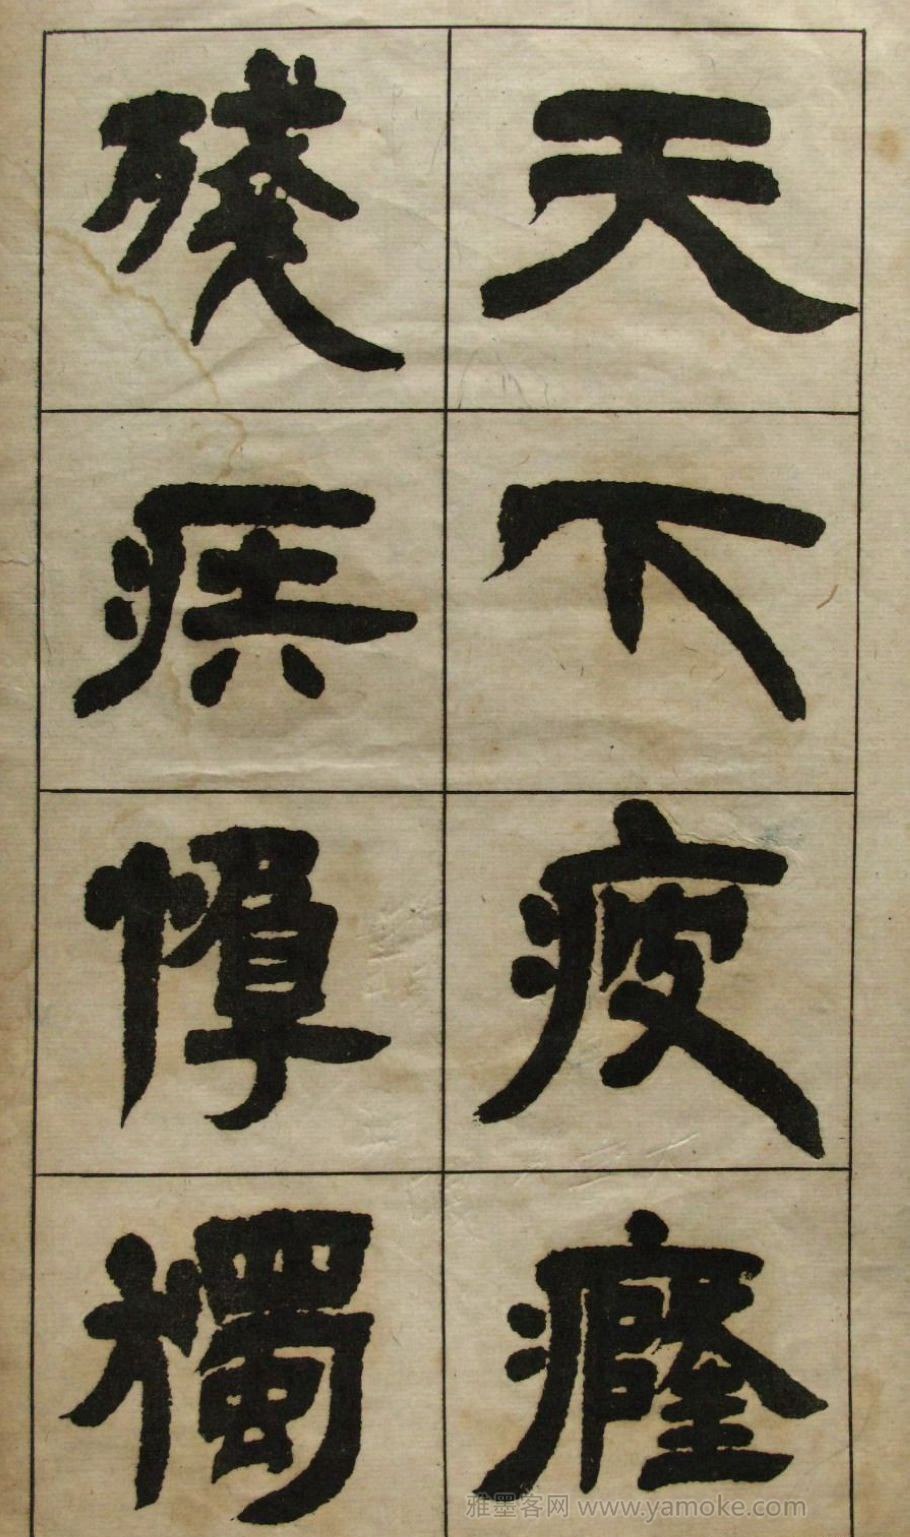 天下疲癃
殘疾惸獨
雅墨客网 www.yamoke.com